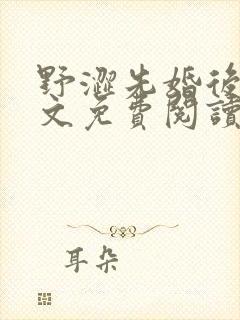 野澀先婚後
文免費閱讀
耳朵